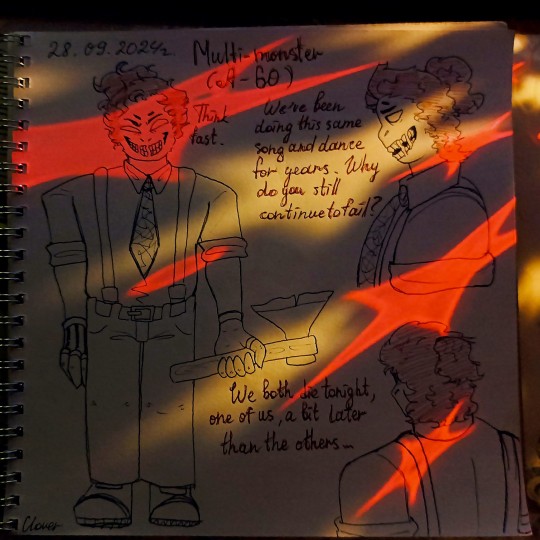 28.09.2024г.
Multi-monster
(A-60)
Think
fast.
We're been
doing this same
song and dance
for years. Why
do you still
continue to fail?
We both die tonight,
one of us, a bit later
than the others...
Clover